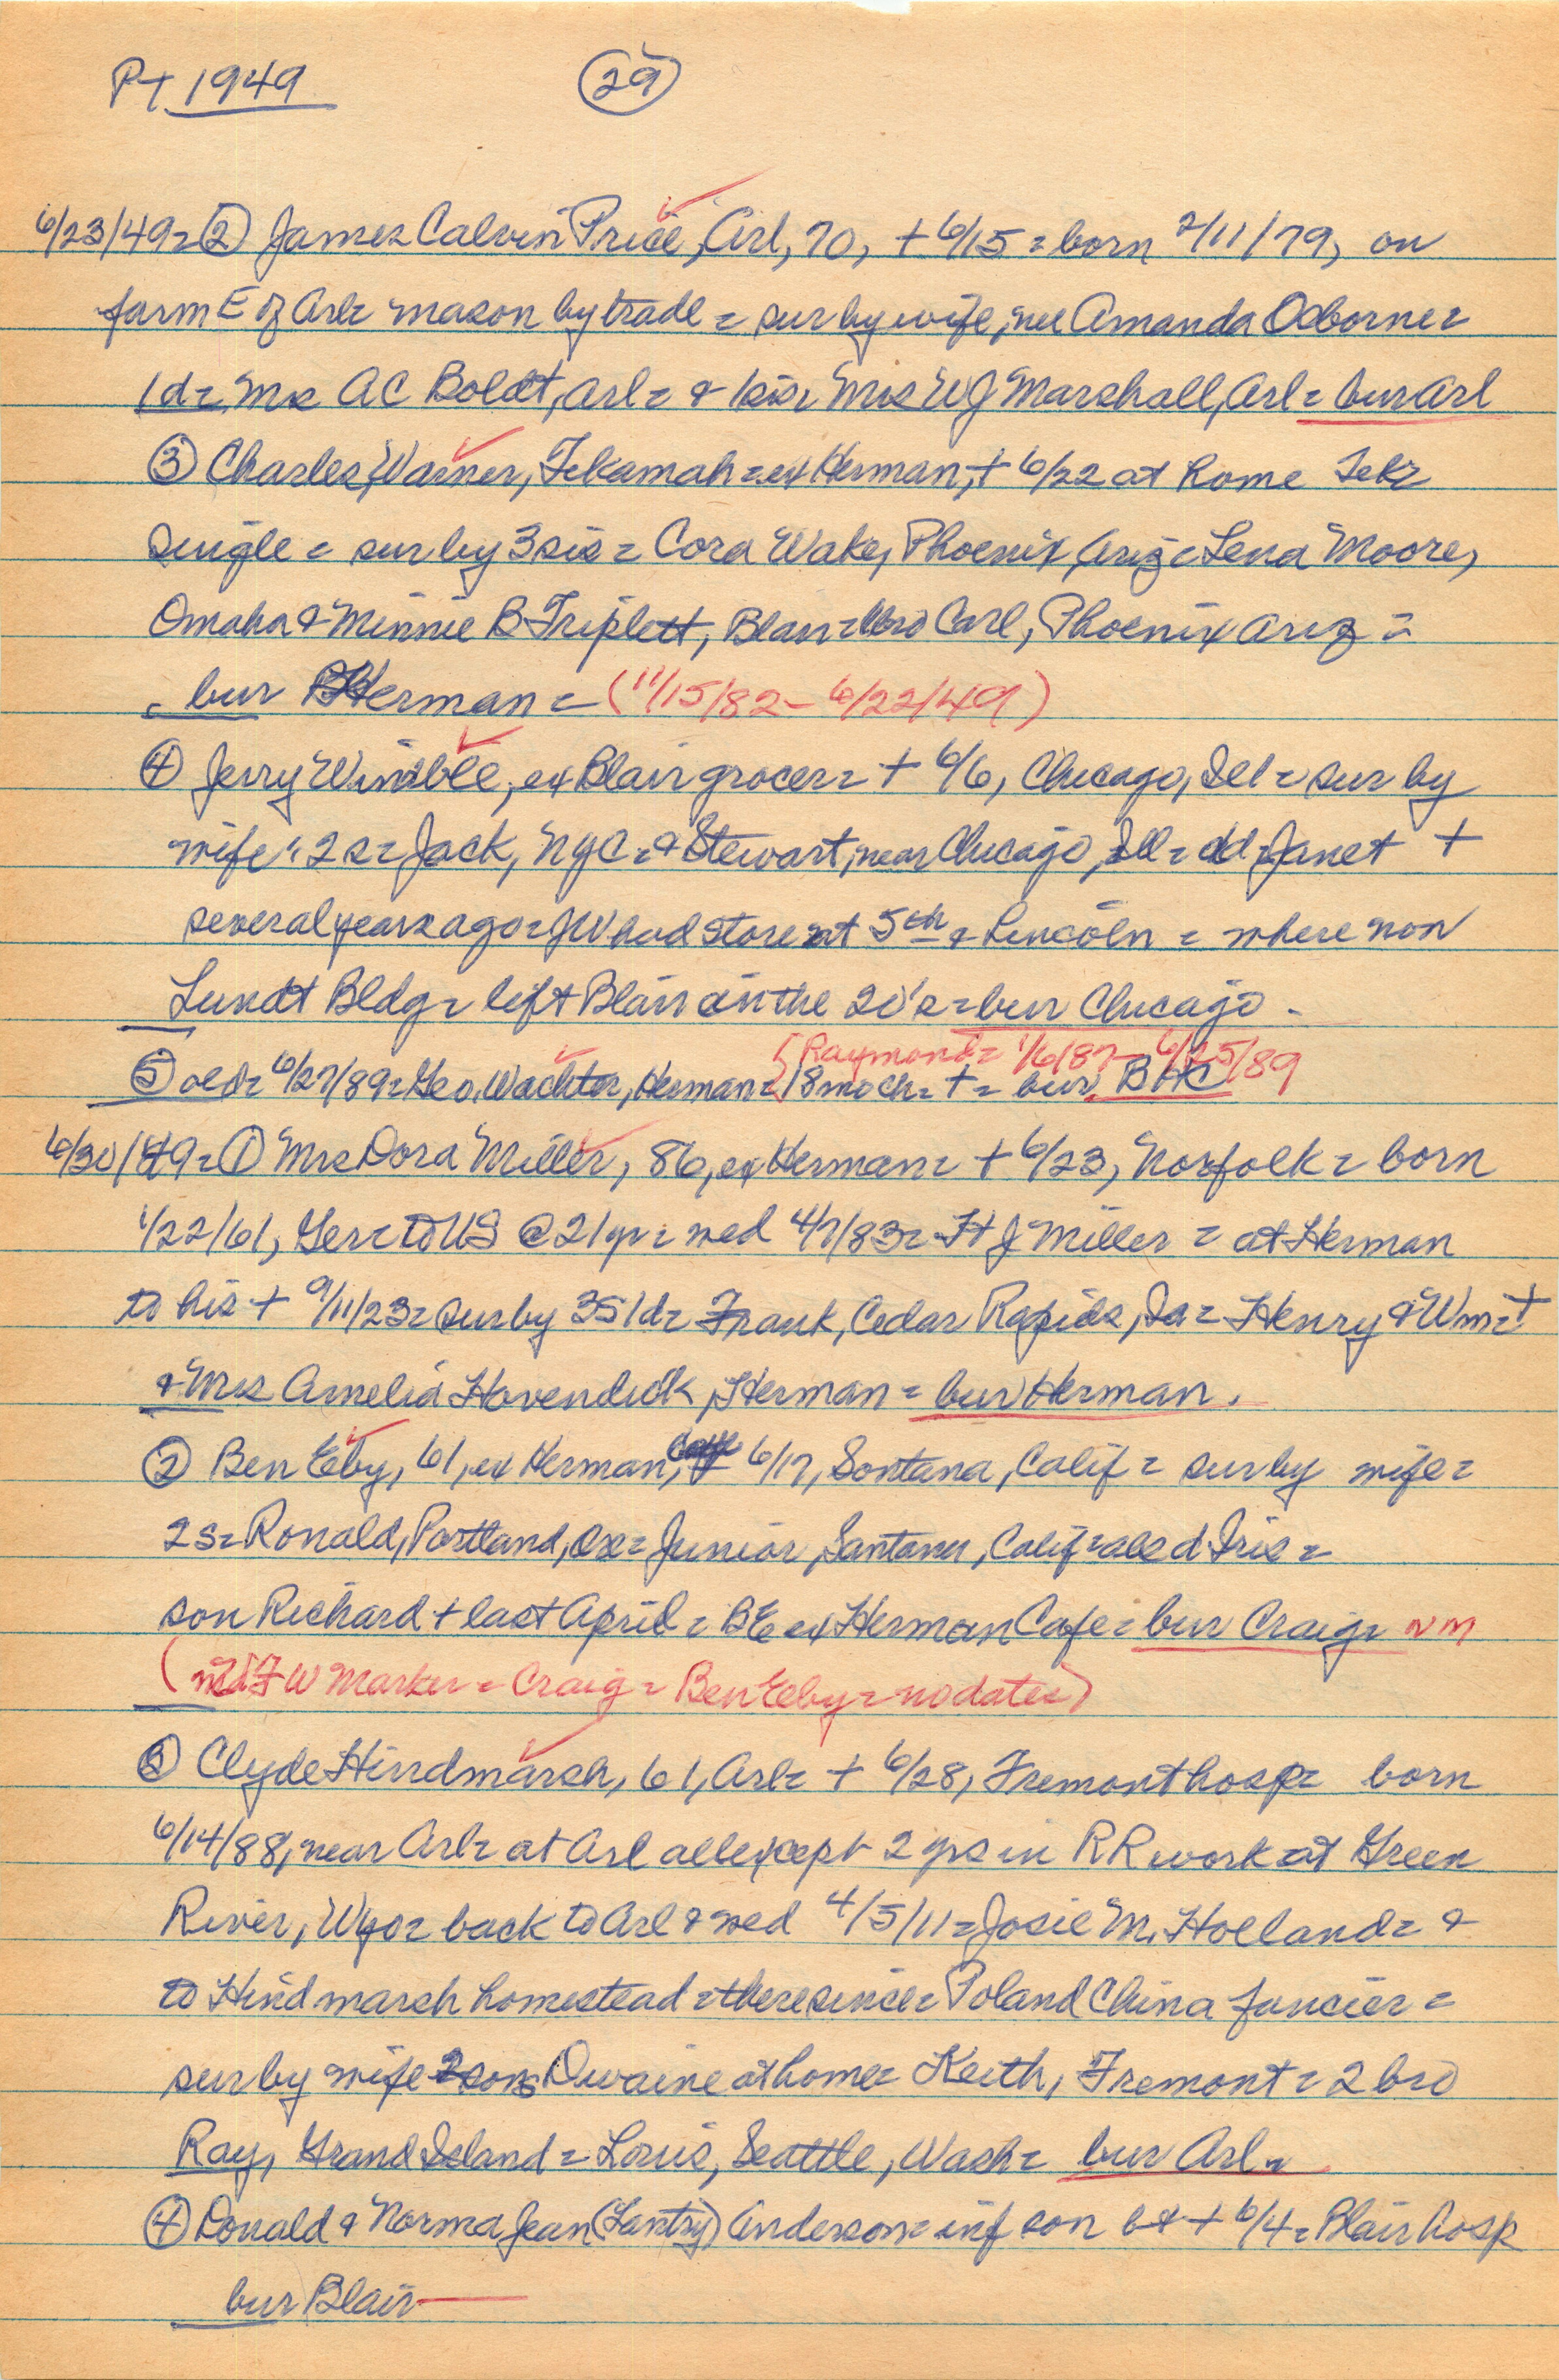 PT 1949 (29)
6/23/49 = (2) James Calvin Price, Arl, 70, + 6/15 = born 2/11/79, on
farm E of Arl = mason by trade = sur by wife, nee Amanda Osborne =
1d = Mrs AC Boldt, Arl = & 1 sis, Mrs WJ Marshall, Arl = bur Arl
(3) Charles Warner, Tekamah = ex Herman, + 6/22 at home Tek =
single = sur by 3 sis = Cora Wake, Phoenix, Ariz = Lena Moore,
Omaha & Minnie B Triplett, Blair = 1 bro Carl, Phoenix Ariz =
bur Herman = (11/15/82 - 6/22/49)
(4) Jerry Wimble, ex Blair grocer = + 6/6, Chicago, Ill = sur by
wife & 2 s = Jack, NYC = & Stewart, near Chicago, Ill = dd Janet +
several years ago = JW had store at 5th & Lincoln = where now
Lundt Bldg = left Blair in the 20's = bur Chicago -
{Raymond = 1/6/87 - 6/25/89
(5) old = 6/27/89 = Geo. Wachter, Herman = 18 mo ch = + = bur BHC
6/30/49 = (1) Mrs Dora Miller, 86, ex Herman = + 6/23, Norfolk = born
1/22/61, Ger = to US @ 21 yr = wed 4/7/83 = H J Miller = at Herman
to his + 9/11/23 = sur by 3S 1d = Frank, Cedar Rapids, Ia = Henry & Wm = +
& Mrs Amelia Hovendick, Herman = bur Herman.
(2) Ben Eby, 61, ex Herman, + 6/17, Sontana, Calif = sur by wife =
2 S = Ronald, Portland, Ore = Junior, Santana, Calif = also d Iris =
son Richard + last April = BE ex Herman Cafe = bur Craig = NM
(Mdl FW Marker = Craig = Ben Eeby = no dates)
(3) Clyde Hindmarsh, 61, Arl = + 6/28, Fremont hosp = born
6/14/88, near Arl = at Arl all except 2 yrs in RR work at Green
River, Wyo = back to Arl & wed 4/5/11 = Josie M. Holland = &
to Hindmarsh homestead = there since = Poland China fancier =
sur by wife 2 sons Dwaine at home = Keith, Fremont = 2 bro
Ray, Grand Island = Louis, Seattle, Wash = bur Arl =
(4) Donald & Norma Jean (Lantry) Anderson = inf son b & + 6/4 = Blair hosp
bur Blair